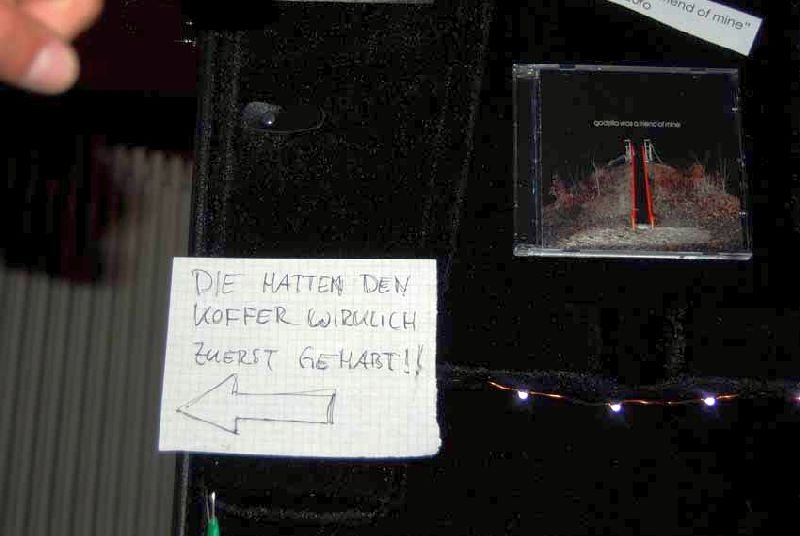 friend of mine"
euro
godzilla was a friend of mine
DIE HATTEN DEN
KOFFER WIRKLICH
ZUERST GEHABT!!